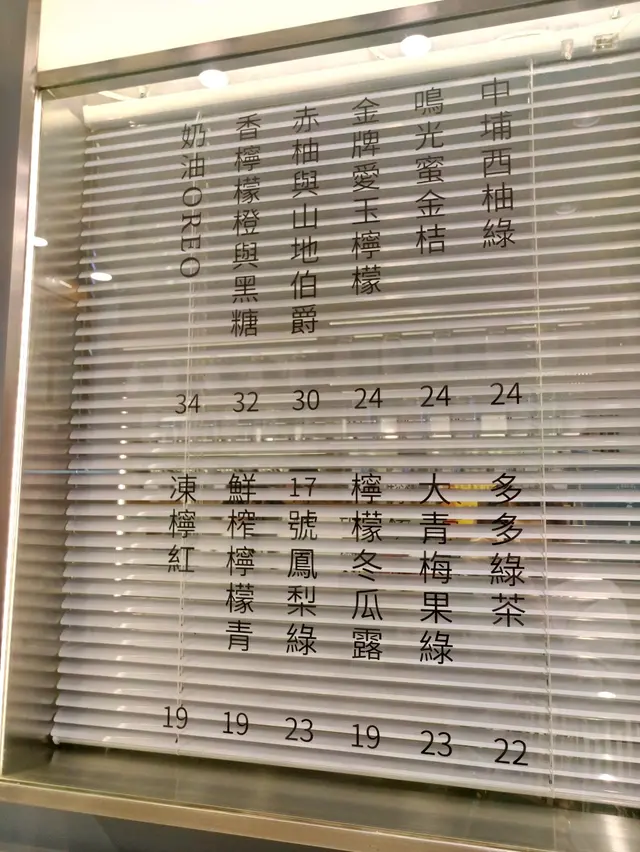 中埔西柚綠
24
鳴光蜜金桔
24
金牌愛玉檸檬
24
赤柚與山地伯爵
30
香檸檬橙與黑糖
32
奶油OREO
34
多多綠茶
22
大青梅果綠
23
檸檬冬瓜露
19
17號鳳梨綠
23
鮮榨檸檬青
19
凍檸紅
19